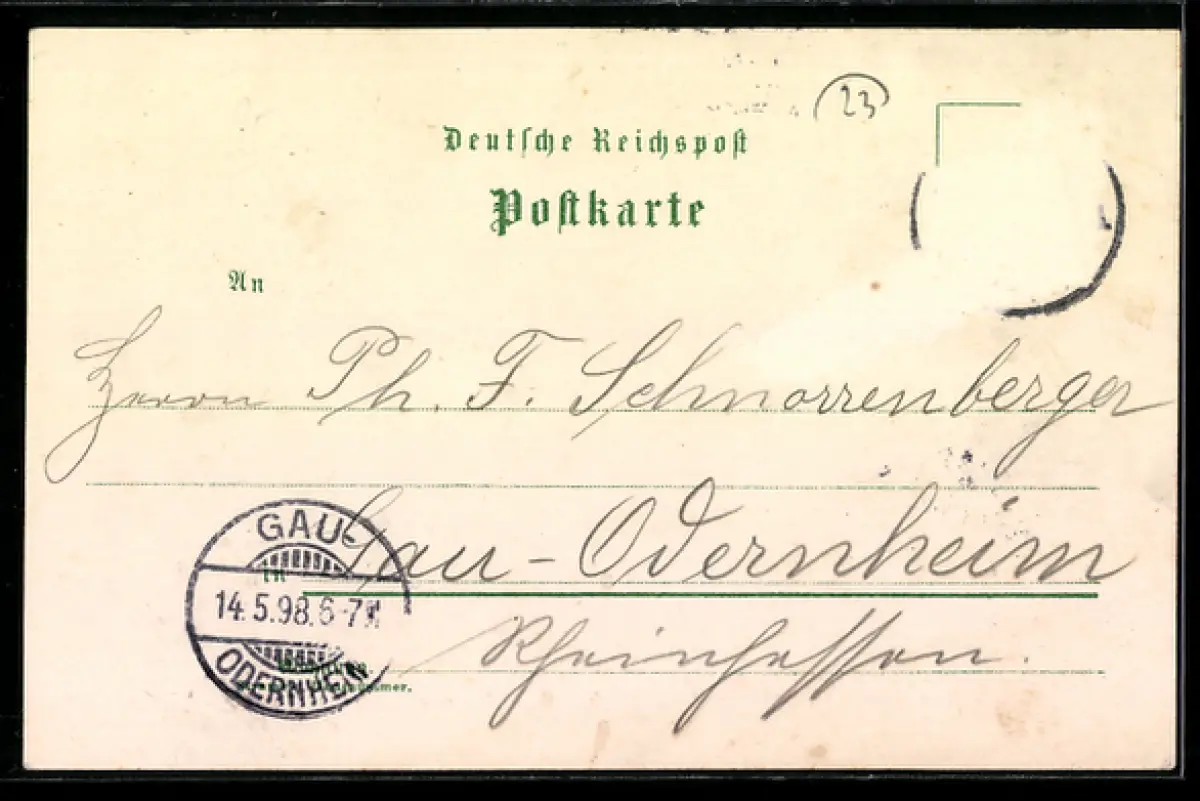 23
Deutsche Reichspost
Postkarte
An
Herrn Ph. F. Schnorrenberger
Gau-Odernheim
in
Rheinhessen.
GAU-
14.5.98. 6-7N
ODERNHEIM